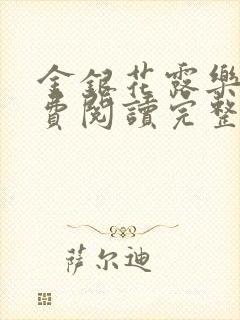 金銀花露樂
費閱讀完整
萨尔迪